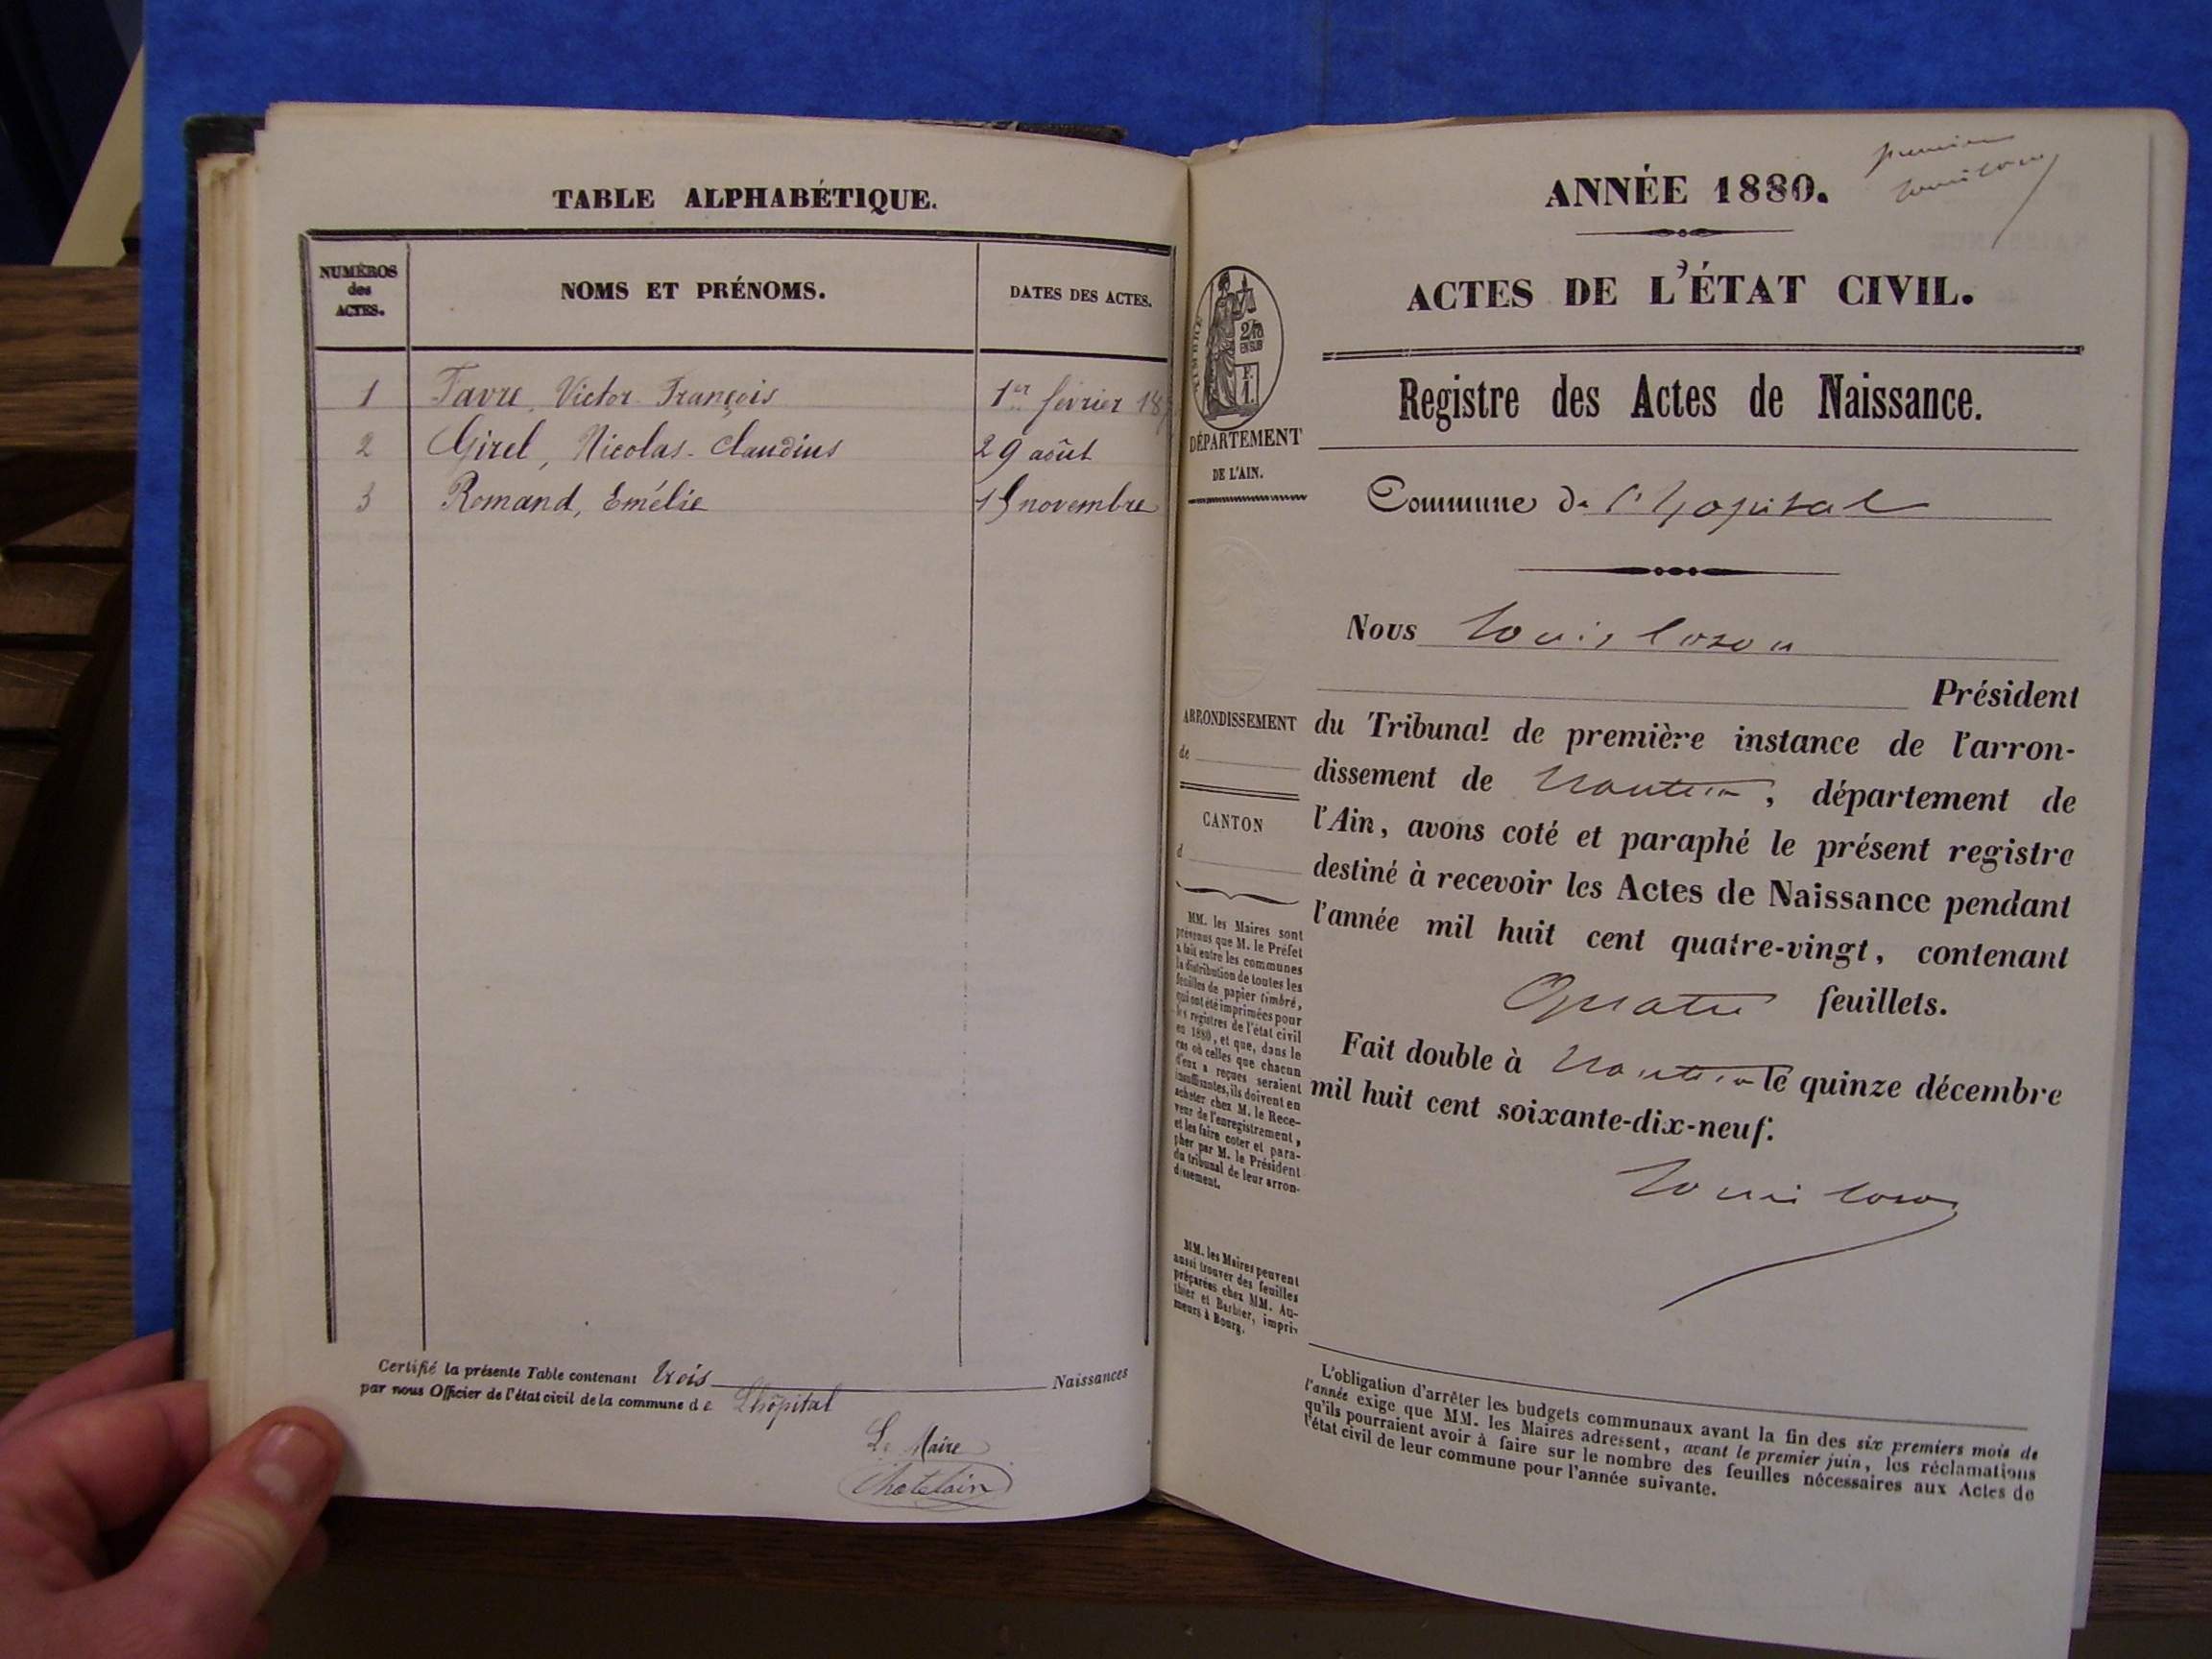 TABLE ALPHABÉTIQUE.
NUMÉROS
des
ACTES.
NOMS ET PRÉNOMS.
DATES DES ACTES.
1 Favre, Victor François 1er février 18
2 Girel, Nicolas-Claudius 29 août
3 Romand, Emélie novembre
Certifié la présente Table contenant trois Naissances
par nous Officier de l'état civil de la commune de Lhôpital
Le Maire
Chatelain
premier
ANNÉE 1880.
ACTES DE L'ÉTAT CIVIL.
Registre des Actes de Naissance.
TIMBRE
2/10
EN SUS
F.
1.
DÉPARTEMENT
DE L'AIN.
Commune de l'hopital
Nous Louis
Président
du Tribunal de première instance de l'arron-
dissement de Nantua, département de
l'Ain, avons coté et paraphé le présent registre
destiné à recevoir les Actes de Naissance pendant
l'année mil huit cent quatre-vingt, contenant
Quatre feuillets.
Fait double à Nantua le quinze décembre
mil huit cent soixante-dix-neuf.
Louis
ARRONDISSEMENT
de
CANTON
d
MM. les Maires sont
prévenus que M. le Préfet
a fait entre les communes
la distribution de toutes les
feuilles de papier timbré,
qui ont été imprimées pour
les registres de l'état civil
en 1880, et que, dans le
cas où celles que chacun
d'eux a reçues seraient
insuffisantes, ils doivent en
acheter chez M. le Rece-
veur de l'enregistrement,
et les faire coter et para-
pher par M. le Président
du tribunal de leur arron-
dissement.
MM. les Maires peuvent
aussi trouver des feuilles
préparées chez MM. Au-
thier et Barbier, impri-
meurs à Bourg.
L'obligation d'arrêter les budgets communaux avant la fin des six premiers mois de
l'année exige que MM. les Maires adressent, avant le premier juin, les réclamations
qu'ils pourraient avoir à faire sur le nombre des feuilles nécessaires aux Actes de
l'état civil de leur commune pour l'année suivante.